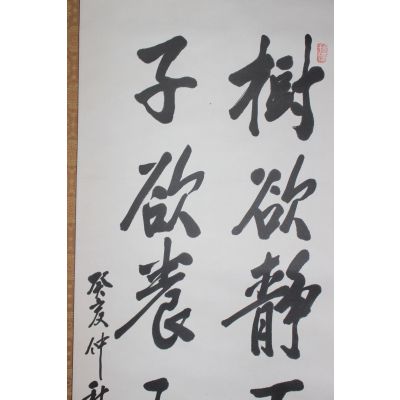 樹欲靜
子欲養
癸亥仲秋